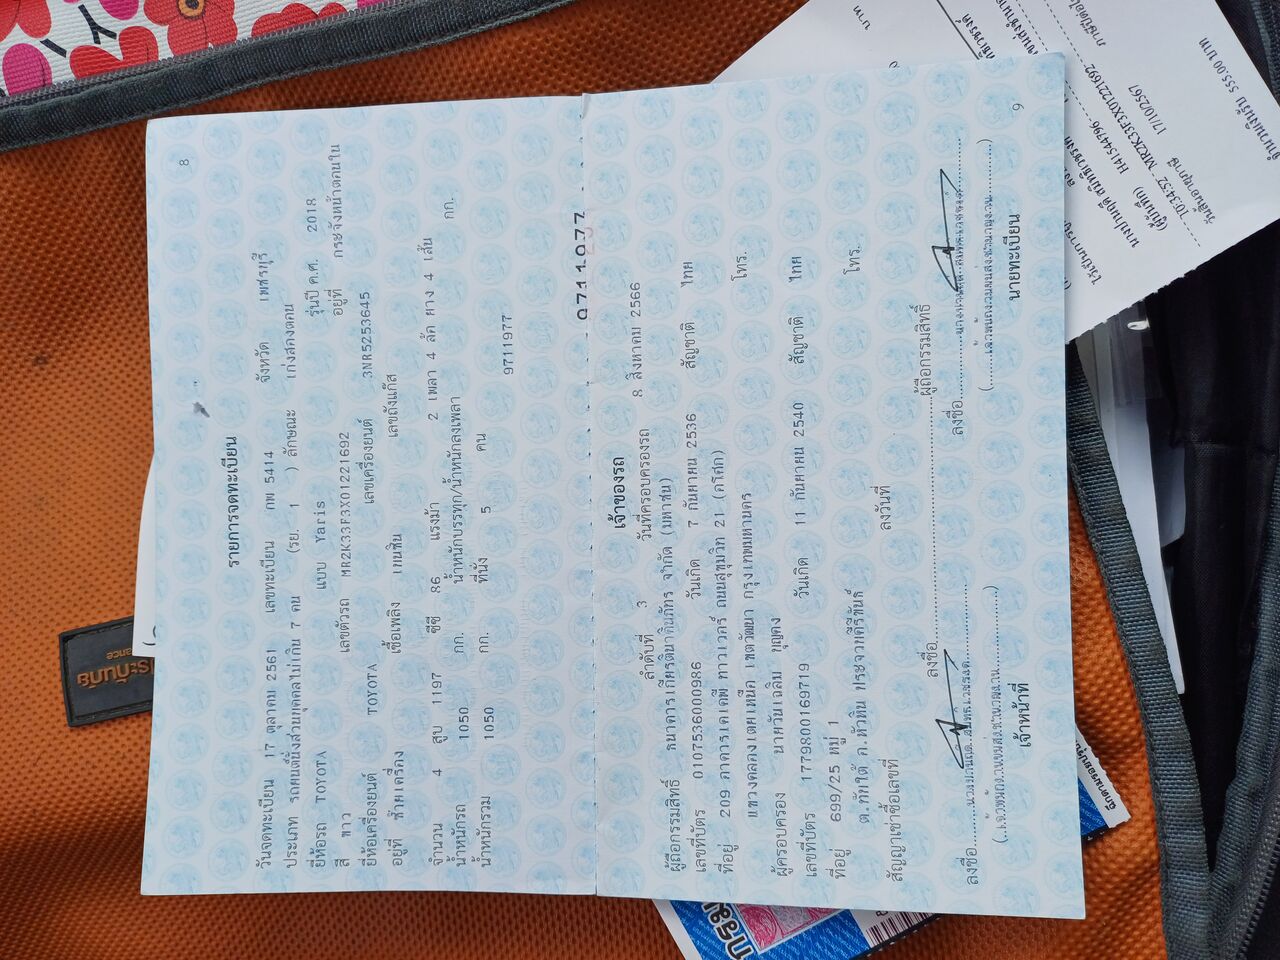 8
รายการจดทะเบียน
วันจดทะเบียน 17 ตุลาคม 2561 เลขทะเบียน กพ 5414 จังหวัด เพชรบุรี
ประเภท รถยนต์นั่งส่วนบุคคลไม่เกิน 7 คน (รย. 1 ) ลักษณะ เก๋งสองตอน
ยี่ห้อรถ TOYOTA แบบ Yaris รุ่นปี ค.ศ. 2018
สี ขาว เลขตัวรถ MR2K33F3X01221692 อยู่ที่ กระจังหน้าตอนใน
ยี่ห้อเครื่องยนต์ TOYOTA เลขเครื่องยนต์ 3NR5253645
อยู่ที่ ท้ายเครื่อง เชื้อเพลิง เบนซิน เลขถังแก๊ส
จำนวน 4 สูบ 1197 ซีซี 86 แรงม้า 2 เพลา 4 ล้อ ยาง 4 เส้น
น้ำหนักรถ 1050 กก. น้ำหนักบรรทุก/น้ำหนักลงเพลา กก.
น้ำหนักรวม 1050 กก. ที่นั่ง 5 คน
9711977
9711977
เจ้าของรถ
ลำดับที่ 3 วันที่ครอบครองรถ 8 สิงหาคม 2566
ผู้ถือกรรมสิทธิ์ ธนาคารเกียรตินาคินภัทร จำกัด (มหาชน)
เลขที่บัตร 0107536000986 วันเกิด 7 กันยายน 2536 สัญชาติ ไทย
ที่อยู่ 209 อาคารเคเคพี ทาวเวอร์ ถนนสุขุมวิท 21 (อโศก)
แขวงคลองเตยเหนือ เขตวัฒนา กรุงเทพมหานคร โทร.
ผู้ครอบครอง นายวันเฉลิม บุญคง
เลขที่บัตร 1779800169719 วันเกิด 11 กันยายน 2540 สัญชาติ ไทย
ที่อยู่ 699/25 หมู่ 1
ต.ทับใต้ อ.หัวหิน ประจวบคีรีขันธ์ โทร.
สัญญาเช่าซื้อเลขที่ ลงวันที่
ลงชื่อ ผู้ถือกรรมสิทธิ์
ลงชื่อ ลงชื่อ
เจ้าหน้าที่ นายทะเบียน
9
10:34:52 - MR2K33F3X01221692
17/10/2567
จำนวนเงินรับ 555.00 บาท
บาท
ประกันภัย